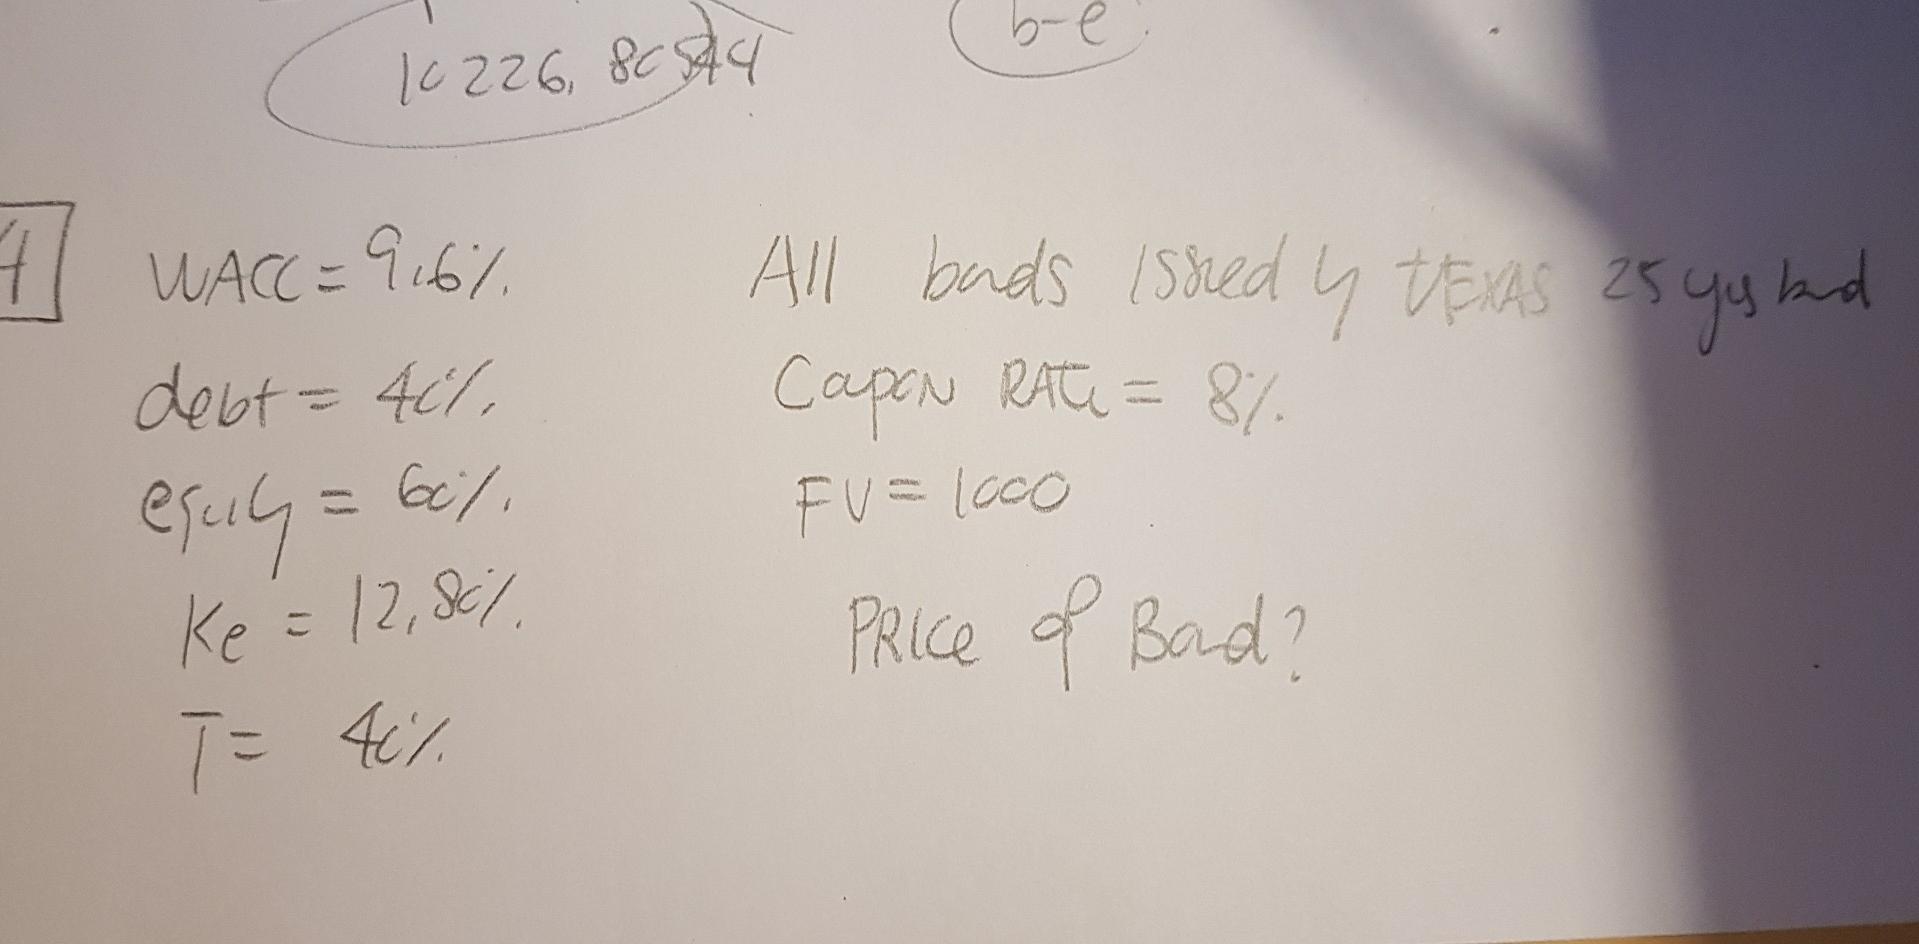 b-e
10226,80544
4
WACC = 9.6%.
debt = 40%.
equity = 60%.
Ke = 12,80%.
T = 40%.
All bonds issued by TEXAS 25 yrs bond
Capon RATe = 8%.
FV = 1000
PRICe of Bond?